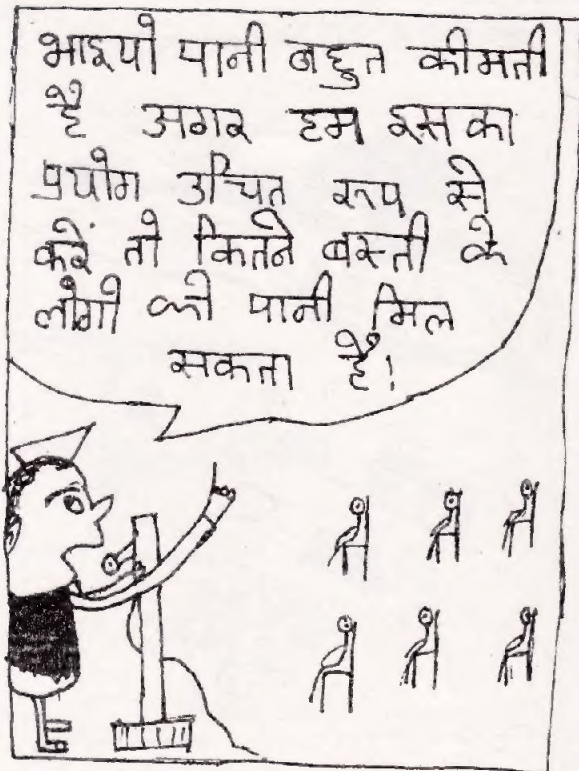 भाइयो पानी बहुत कीमती
है अगर हम इसका
प्रयोग उचित रूप से
करें तो कितने बस्ती के
लोगो को पानी मिल
सकता है।